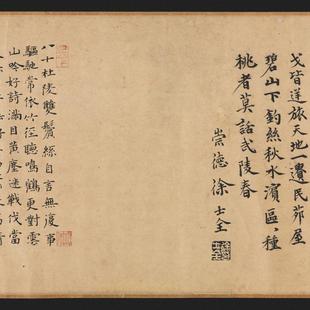 戈皆逆旅天地一遺民茆屋
碧山下釣絲秋水濱區區種
桃者莫話武陵春
崇德徐士全
八十杜陵雙鬢絲自言無復事
驅馳常依竹徑聽鳴鶴更對雲
山吟好詩滿目黃塵迷戰伐當